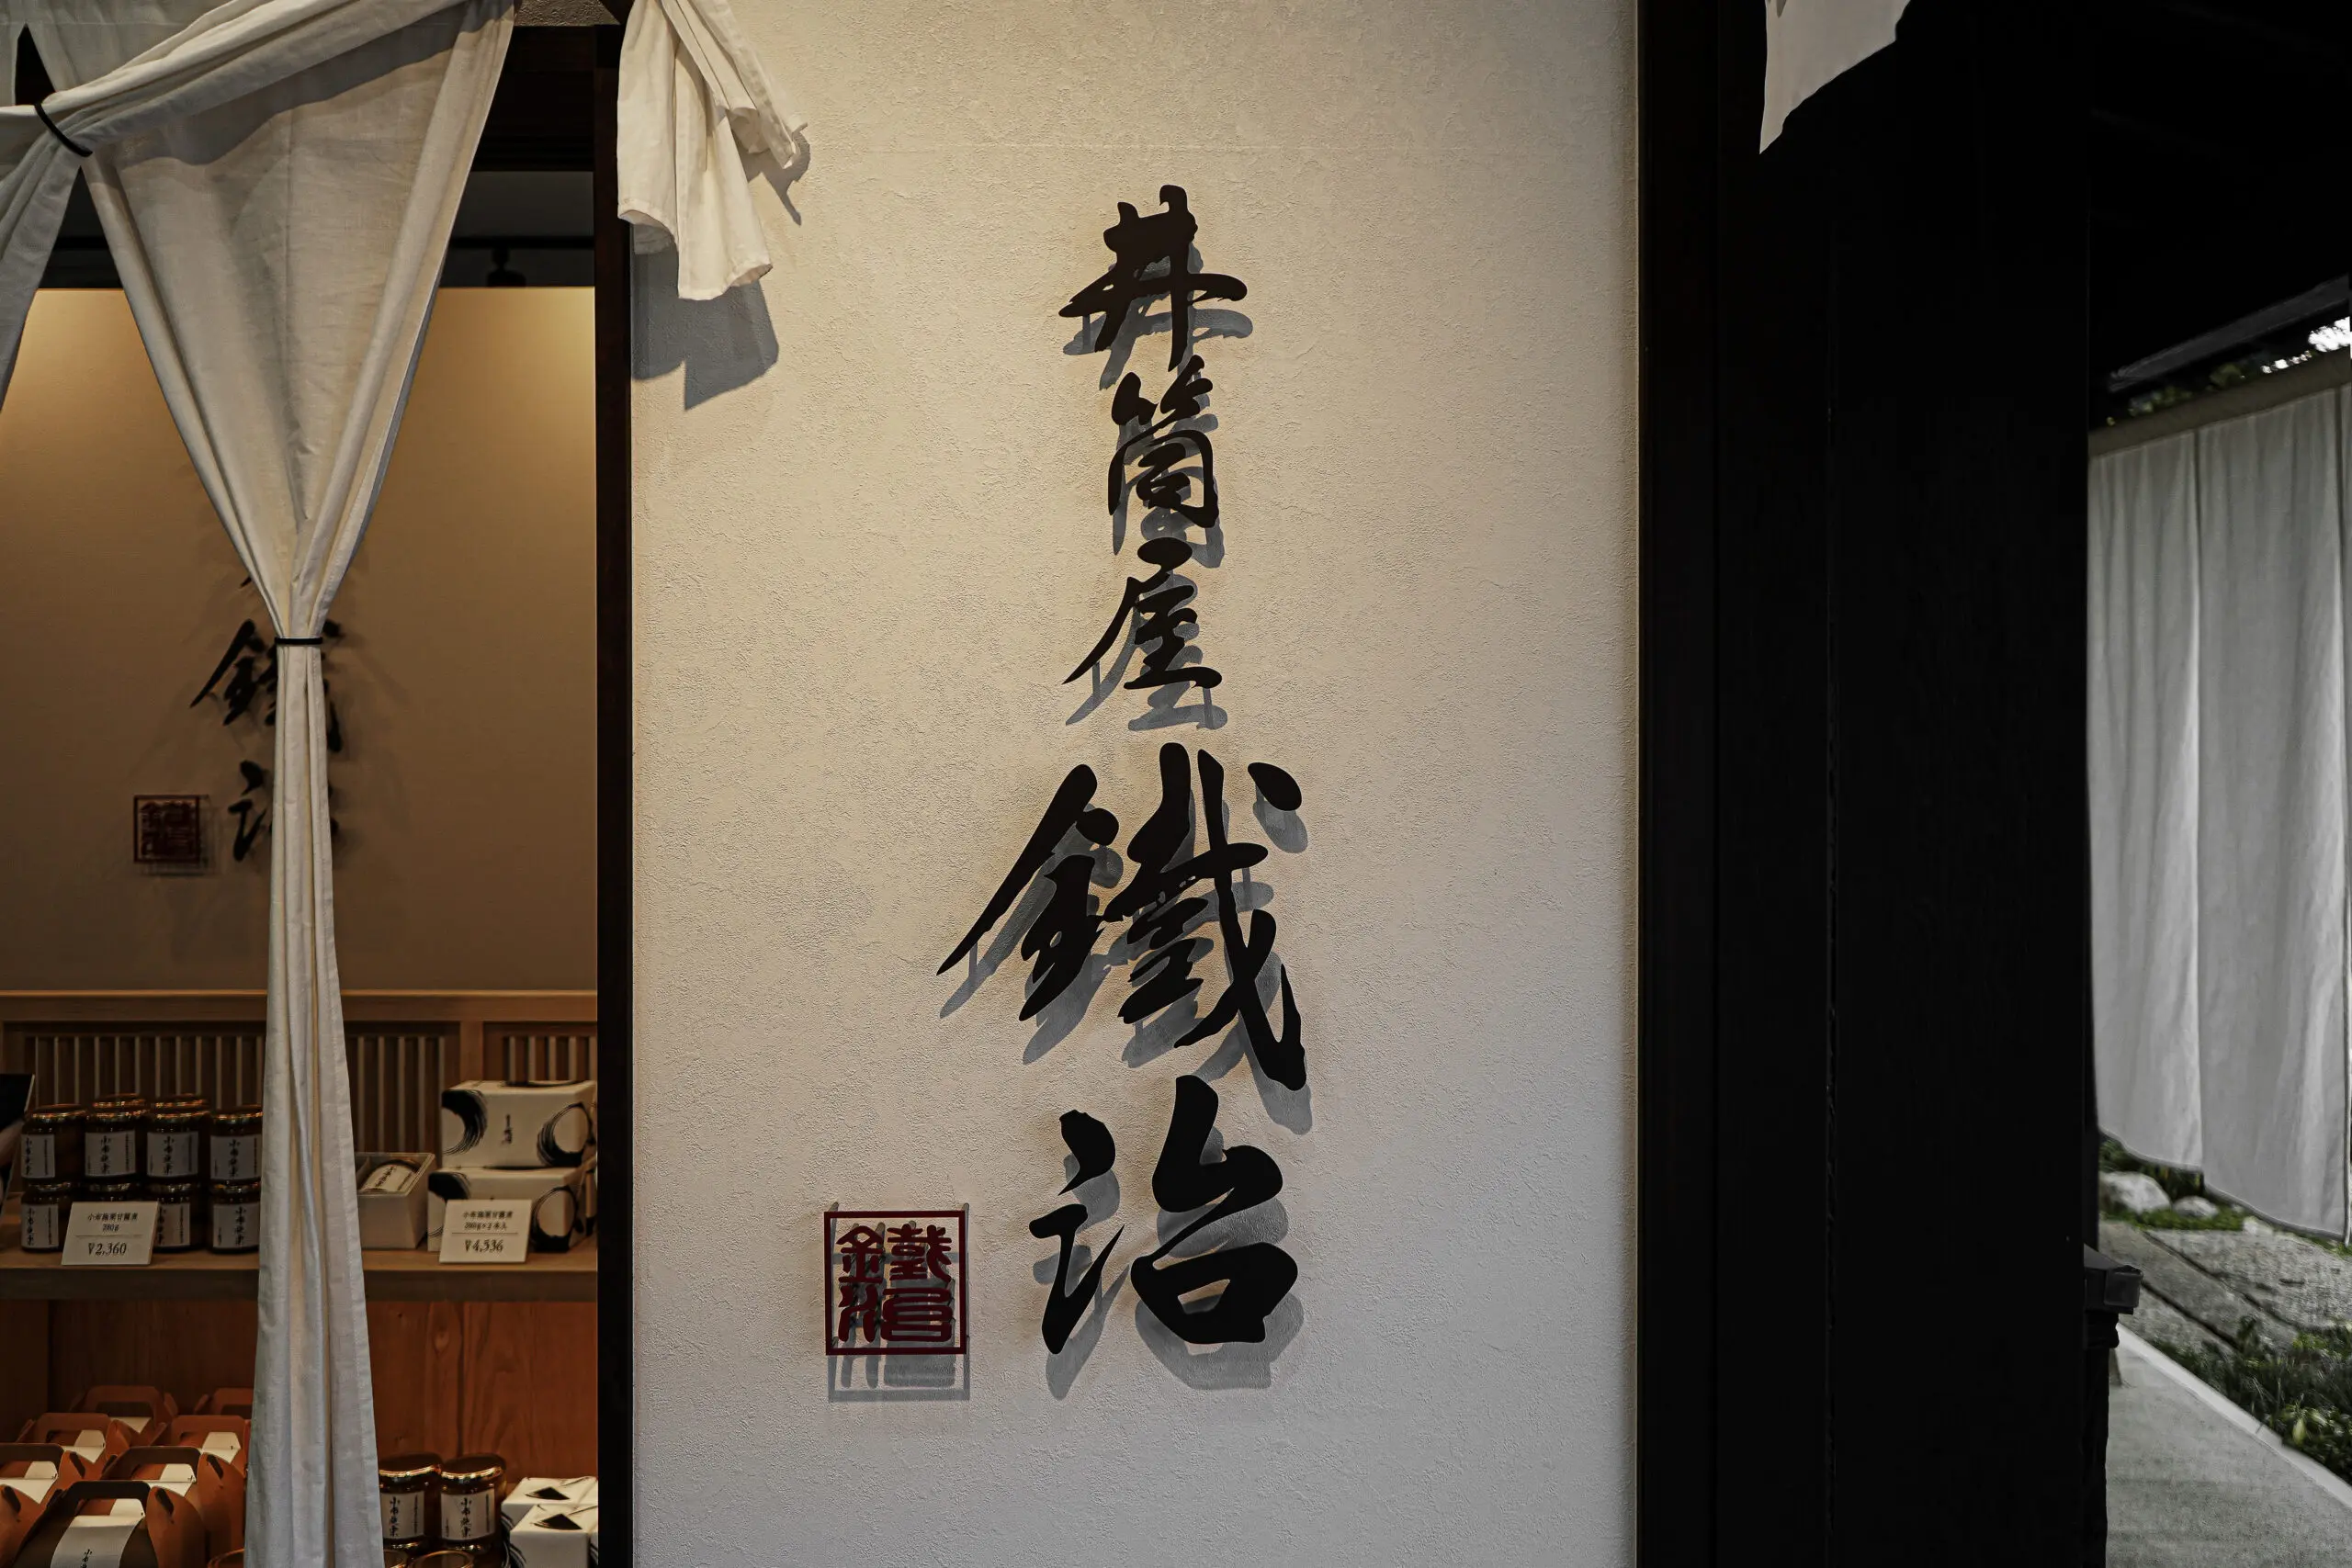 井筒屋鐵治
鐵治
小布施栗甘露煮
280g
¥2,360
小布施栗甘露煮
280g×2本入
¥4,536